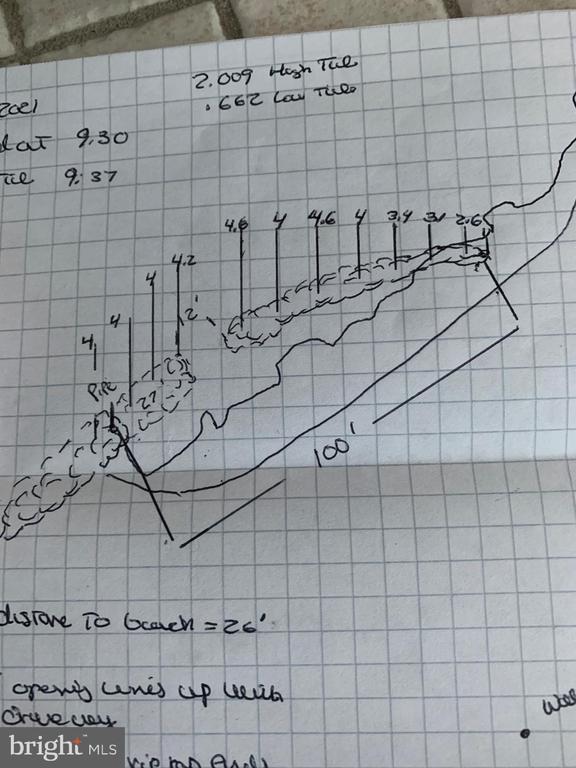 2.009 High Tide
.662 Low Tide
2021
at 9:30
9:37
4.6 4 4.6 4 3.4 3.1 2.6
4.2
4
2'
4
4
Pipe
100'
distance To beach = 26'
opening lines up with
driveway
bright MLS